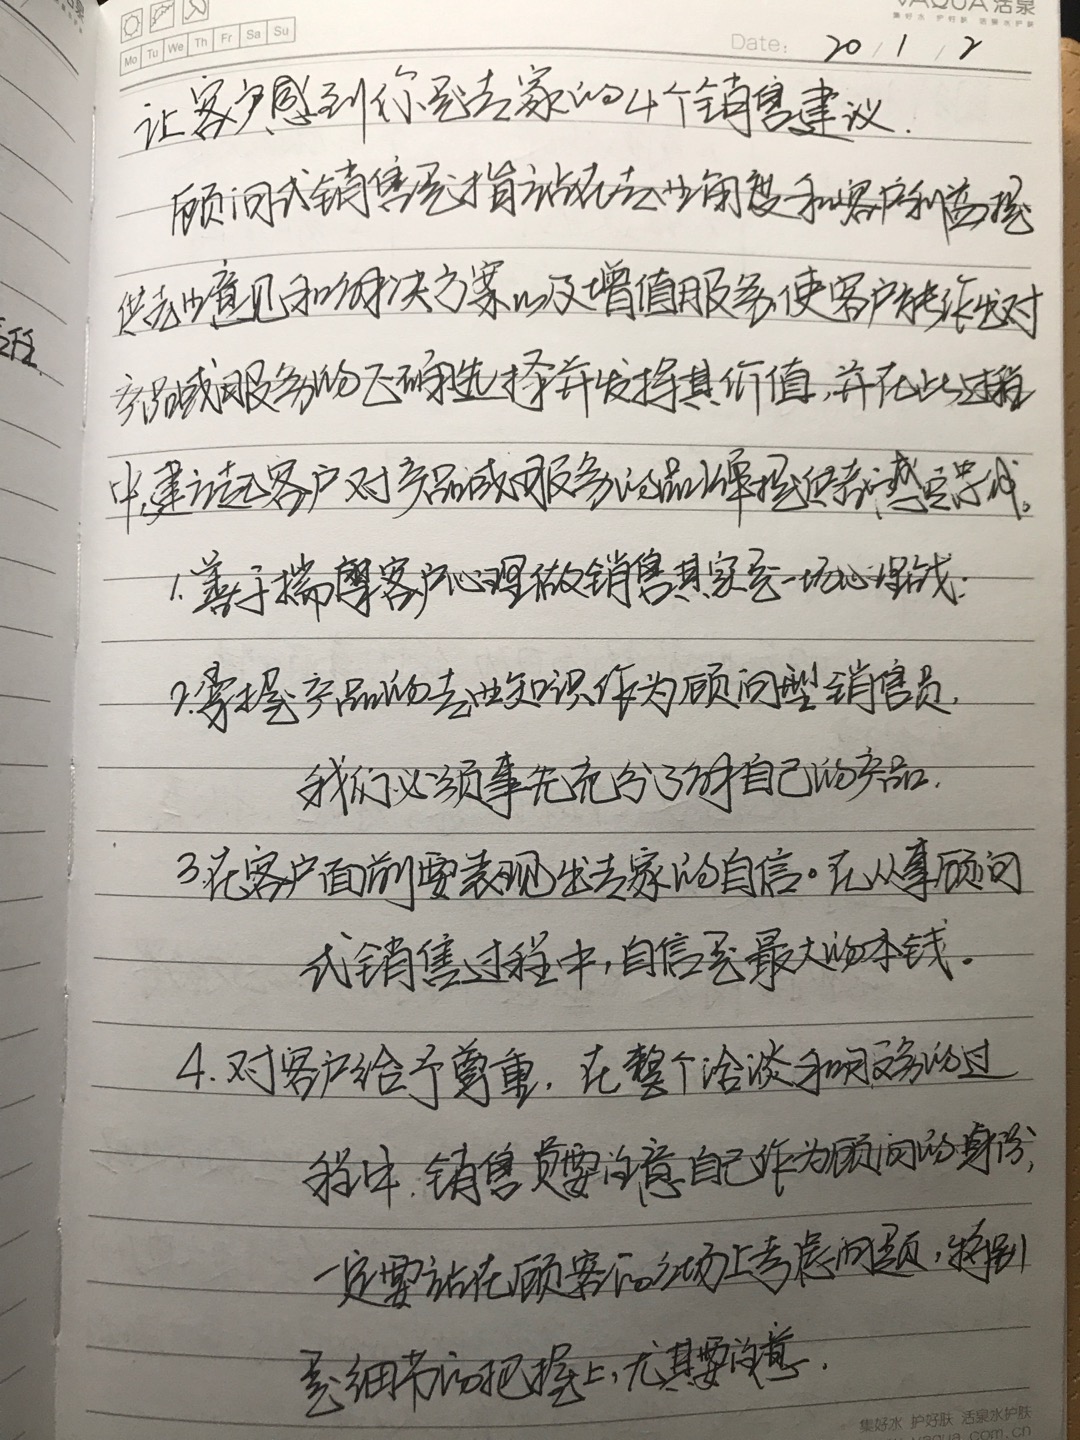 VAQUA 活泉
集好水 护好肤 活泉水护肤
Mo Tu We Th Fr Sa Su
Date: 20/1/2
让客户感到你是专家的4个销售建议.
顾问式销售是指站在专业角度和客户利益提
供专业意见和解决方案以及增值服务,使客户能作出对
产品或服务的正确选择并发挥其价值,并在此过程
中建立起客户对产品或服务的品牌提
1.善于揣摩客户心理做销售其实是一场心理战:
2.掌握产品的专业知识作为顾问型销售员,
我们必须事先充分了解自己的产品.
3.在客户面前要表现出专家的自信。在从事顾问
式销售过程中,自信是最大的本钱。
4.对客户给予尊重,在整个洽谈和服务的过
程中.销售员要注意自己作为顾问的身份,
一定要站在顾客的立场上考虑问题,特别
是细节的把握上,尤其要注意.
责任.
集好水 护好肤 活泉水护肤